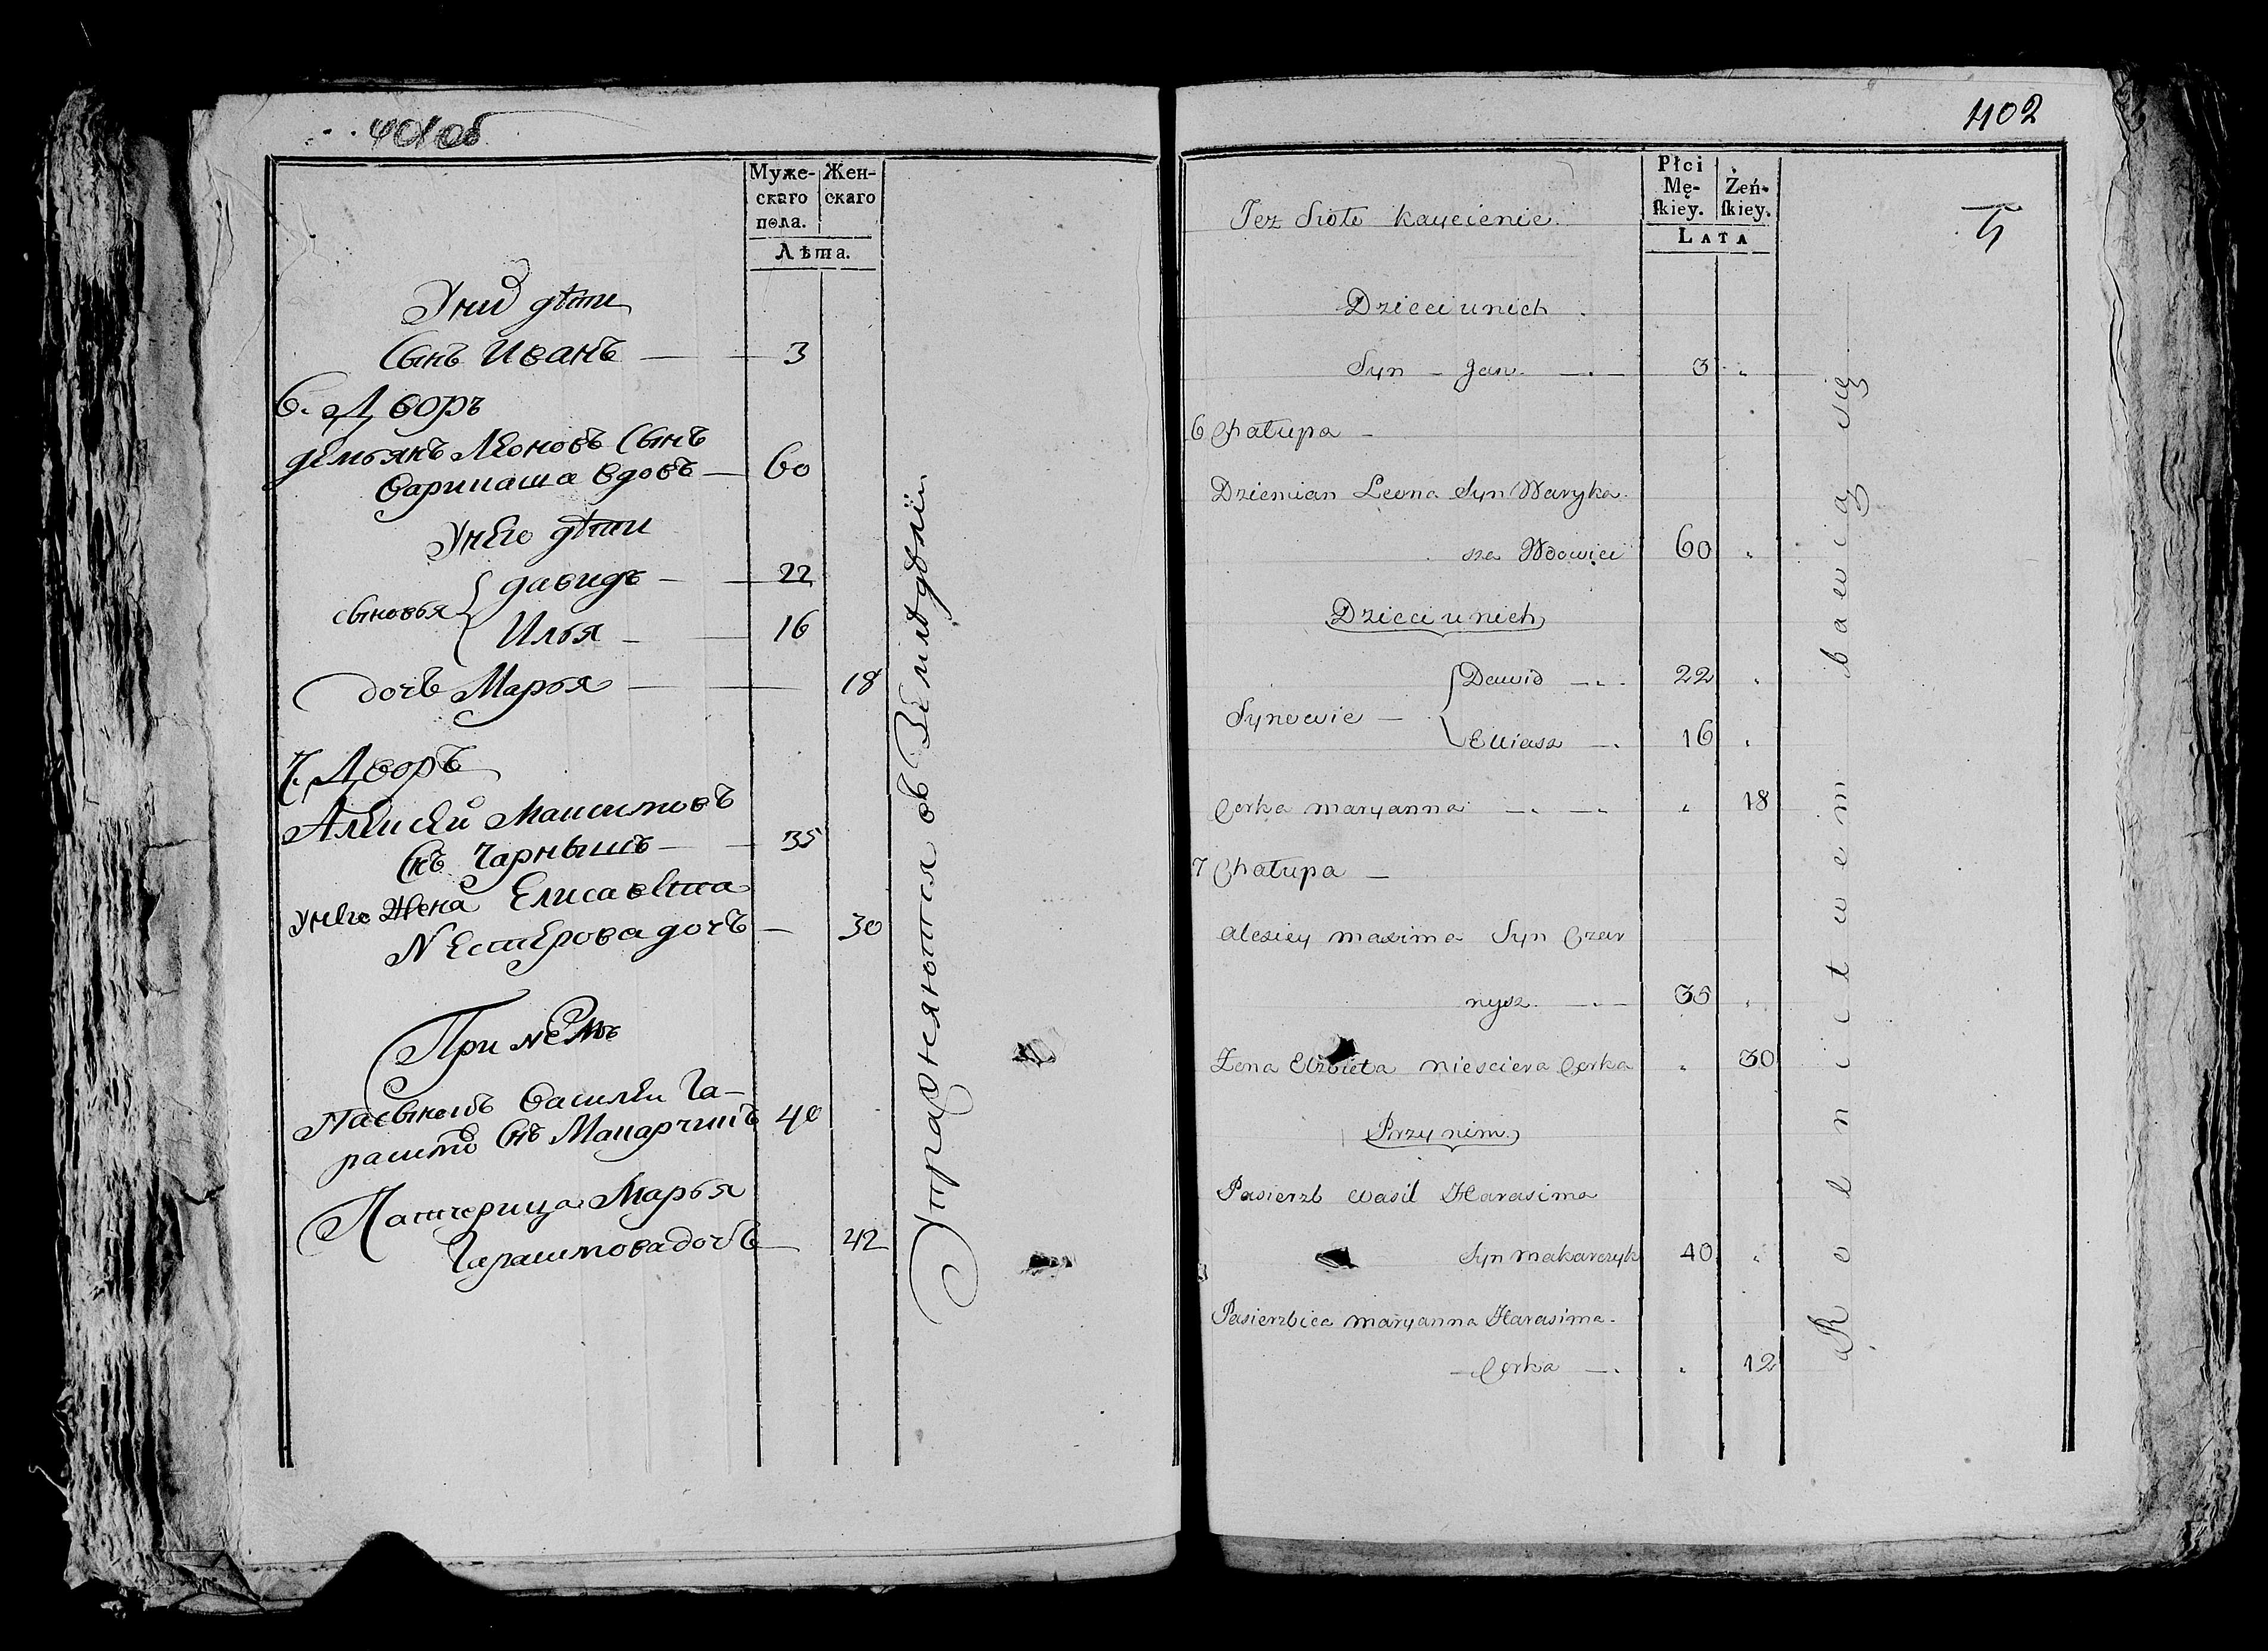 401 об
Муже-
скаго
пола.
Жен-
скаго
Лѣта.
У них дѣти
Сынъ Иванъ — 3
6. Дворъ
демьянъ Леоновъ Сынъ
Варикаша вдовъ — 60
У него дѣти
сыновья { давидъ — 22
Илья — 16
дочь Марья — 18
7. Дворъ
Алексей Максимовъ
Снъ Чарнышъ — 35
У него Жена Елисавета
Нестерова дочь — 30
При нем
Пасынокъ Василей Га-
расимов Снъ Макарчикъ 40
Патчерица Марья
Гарасимова дочь — 42
Упражняются въ Земледѣлiи
402
Też Sioło Kaycienie.
Płci
Mę-
skiey.
Żeń-
skiey.
LATA
5
Dzieci u nich
Syn - Jan — 3 "
6 Chałupa —
Dziemian Leona Syn Waryka-
sza Wdowiec 60 "
Dzieci u nich
Synowie — { Dawid — 22 "
Elliasz — 16 "
Corka maryanna — — " 18
7 Chałupa —
alexiey maxima Syn Czar
nysz. — 35 "
Żona Elzbieta niesciera Corka " 30
Przy nim
Pasierzb wasil Harasima
Syn makarczyk 40 "
Pasierzbica maryanna Harasima-
Corka — " 12
Rolnictwem bawią się